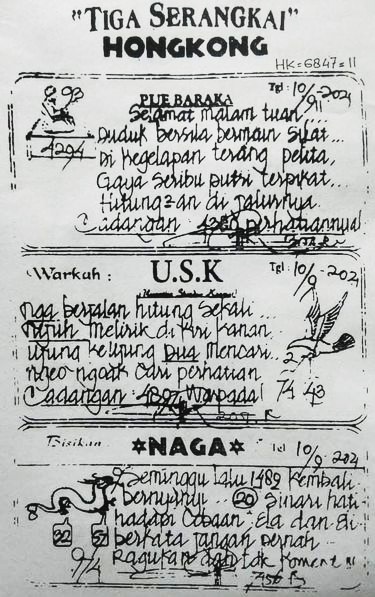 "TIGA SERANGKAI"
HONGKONG
HK=6847=11
893
4294
Tgl: 10/9-2021
PUE BARAKA
Selamat malam tuan,...
Duduk bersila bermain silat...
Di kegelapan terang pelita,
Gaya seribu putri terpikat...
Hitungan di jalurnya
Cadangan perhatiannya!
Warkah:
U.S.K
Tgl: 10/9-2021
berjalan hitung sekali...
melirik di kiri kanan
ujung ke ujung Dua mencari..
ngeo ngoak cari perhatian
Cadangan Waspada!
2
74 43
Bisikan
NAGA
Tgl 10/9-2021
Seminggu lalu 1489 kembali
bernyanyi.. 20 sinari hati
hadapi cobaan
berkata jangan pernah
Ragukan dan tak koment
8
9